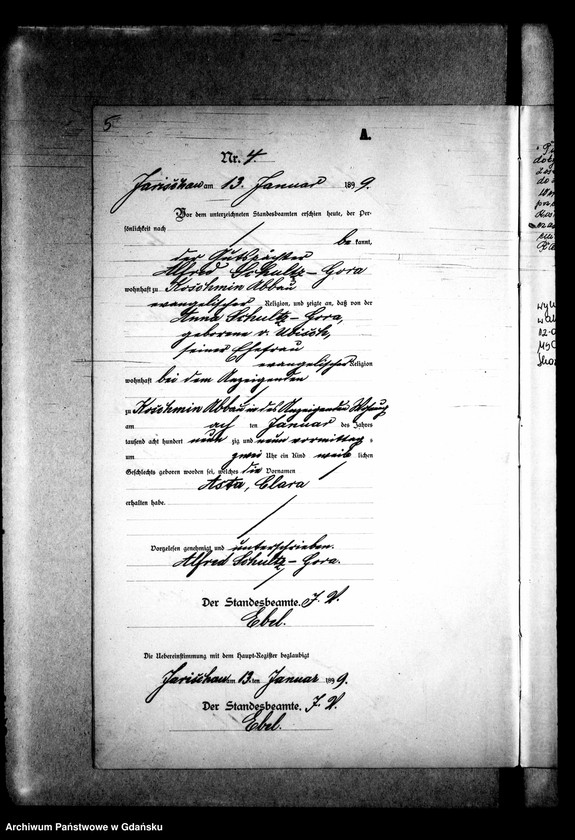 5
A.
Nr. 4.
Jarischau am 13. Januar 1899.
Vor dem unterzeichneten Standesbeamten erschien heute, der Per-
sönlichkeit nach
bekannt,
der Gutspächter
Alfred Schultz-Gora
wohnhaft zu Koschmin Abbau
evangelischer Religion, und zeigte an, daß von der
Anna Schultz-Gora,
geborene v.
seiner Ehefrau
evangelischer Religion
wohnhaft bei dem Anzeigenden
zu Koschmin Abbau in des Anzeigenden Wohnung
am acht ten Januar des Jahres
tausend acht hundert neun zig und neun vormittag s
um zwei Uhr ein Kind weib lichen
Geschlechts geboren worden sei, welches die Vornamen
Asta, Clara
erhalten habe.
Vorgelesen, genehmigt und unterschrieben.
Alfred Schultz-Gora.
Der Standesbeamte. J. V.
Ebel.
Die Uebereinstimmung mit dem Haupt-Register beglaubigt
Jarischau am 13. ten Januar 1899.
Der Standesbeamte. J. V.
Ebel.
Archiwum Państwowe w Gdańsku